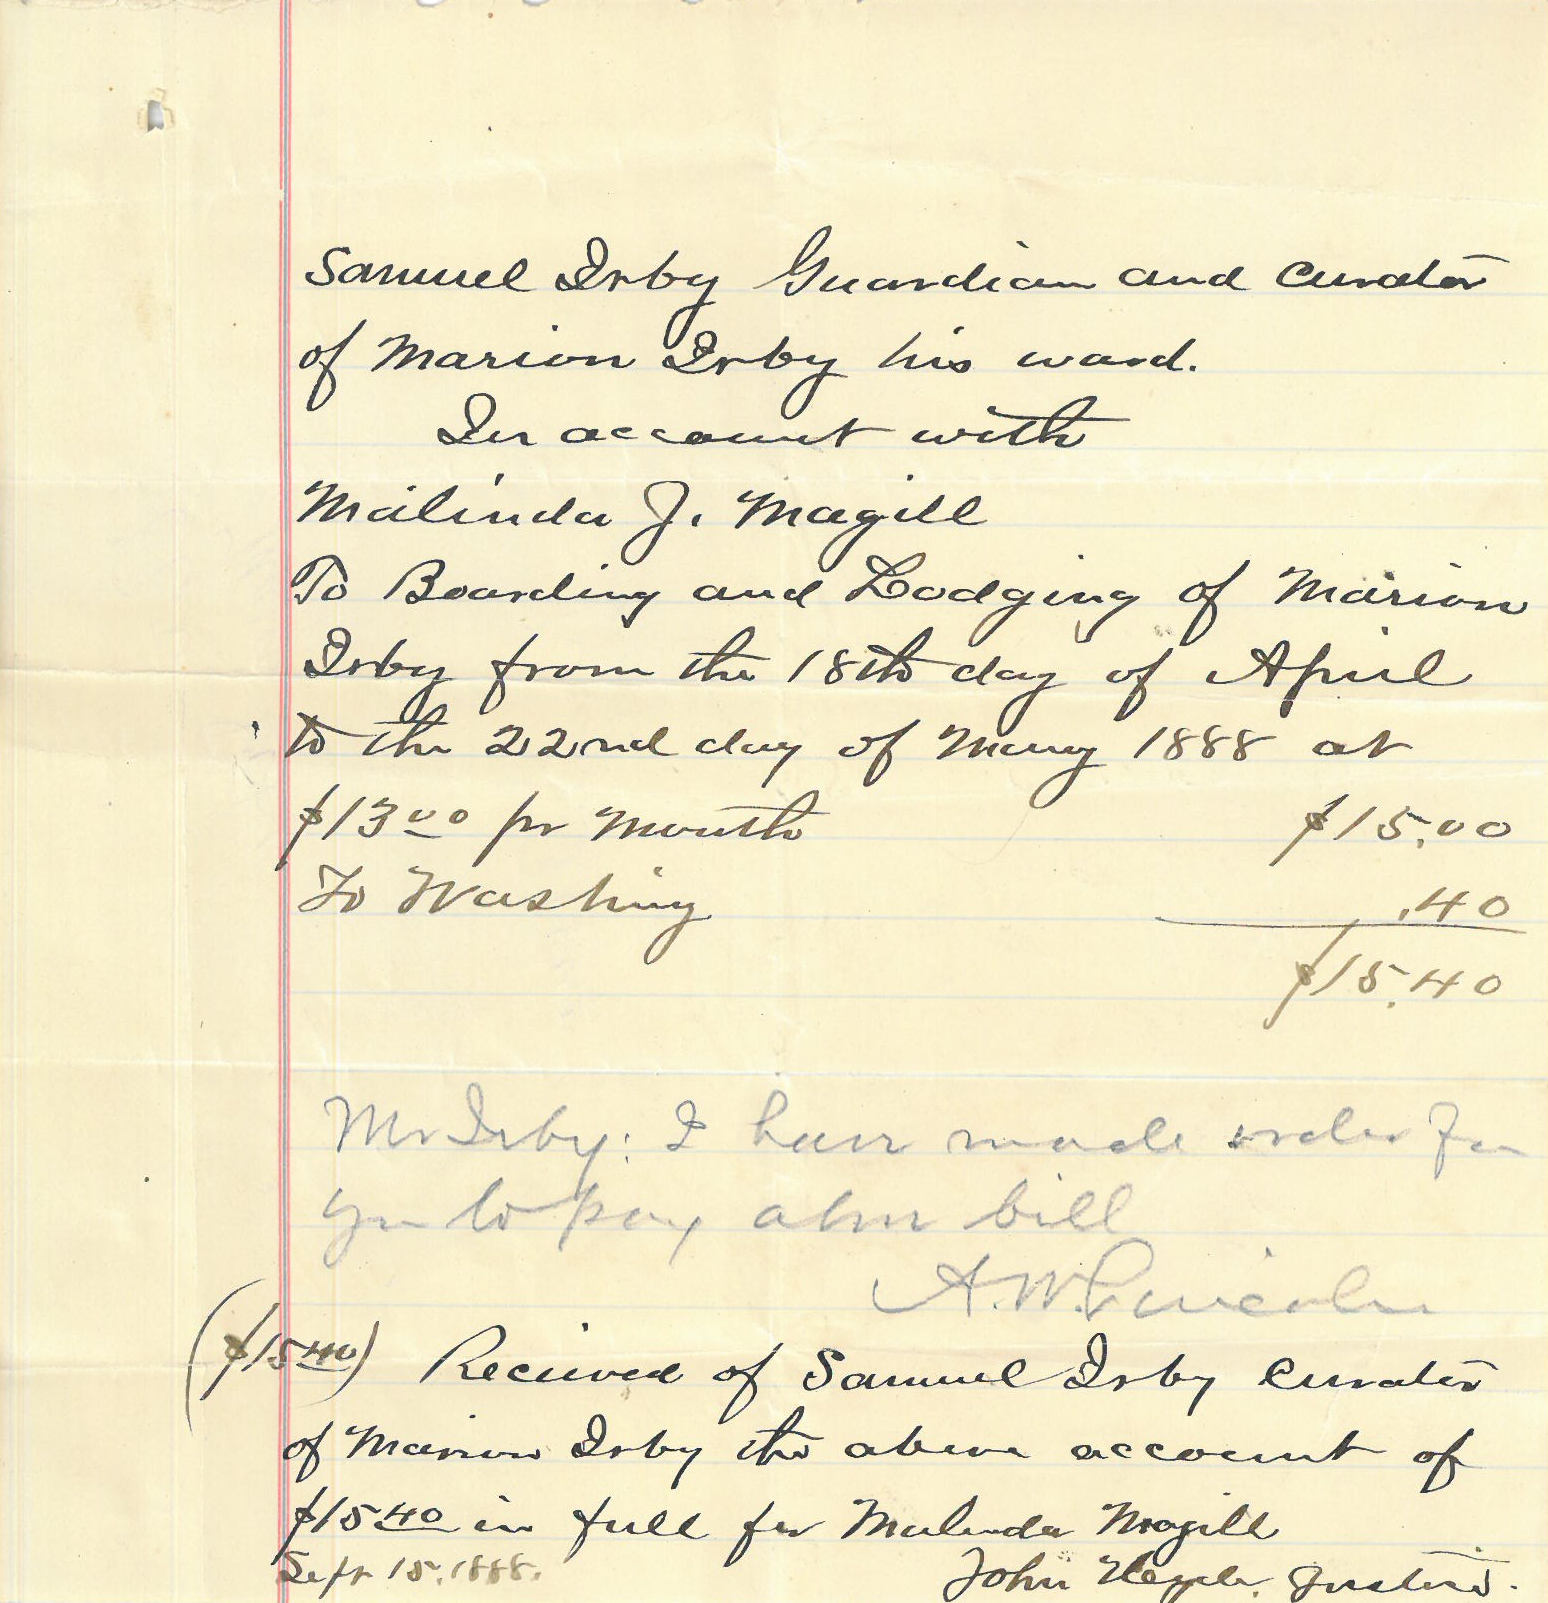 Samuel Irby Guardian and Curator
of Marion Irby his ward.
In account with
Malinda J. Magill
To Boarding and Lodging of Marion
Irby from the 18th day of April
to the 22nd day of May 1888 at
$13 00 pr Month $15.00
To Washing .40
$15.40
Mr Irby: I have made order for
you to pay above bill
A.W. Lincoln
($15 40) Recieved of Samuel Irby Curator
of Marion Irby the above account of
$15 40 in full for Malinda Magill
Sept 15, 1888.
John